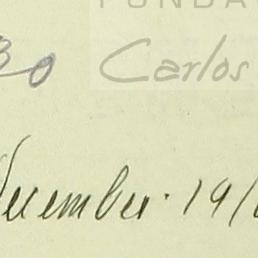 FUNDA
30 Carlos
December. 19/